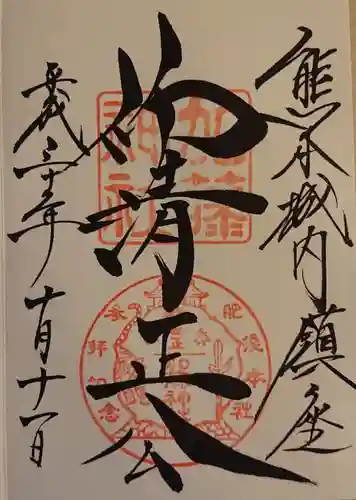 熊本城内鎮座
仰清正公
平成三十年十月十一日
加藤神社